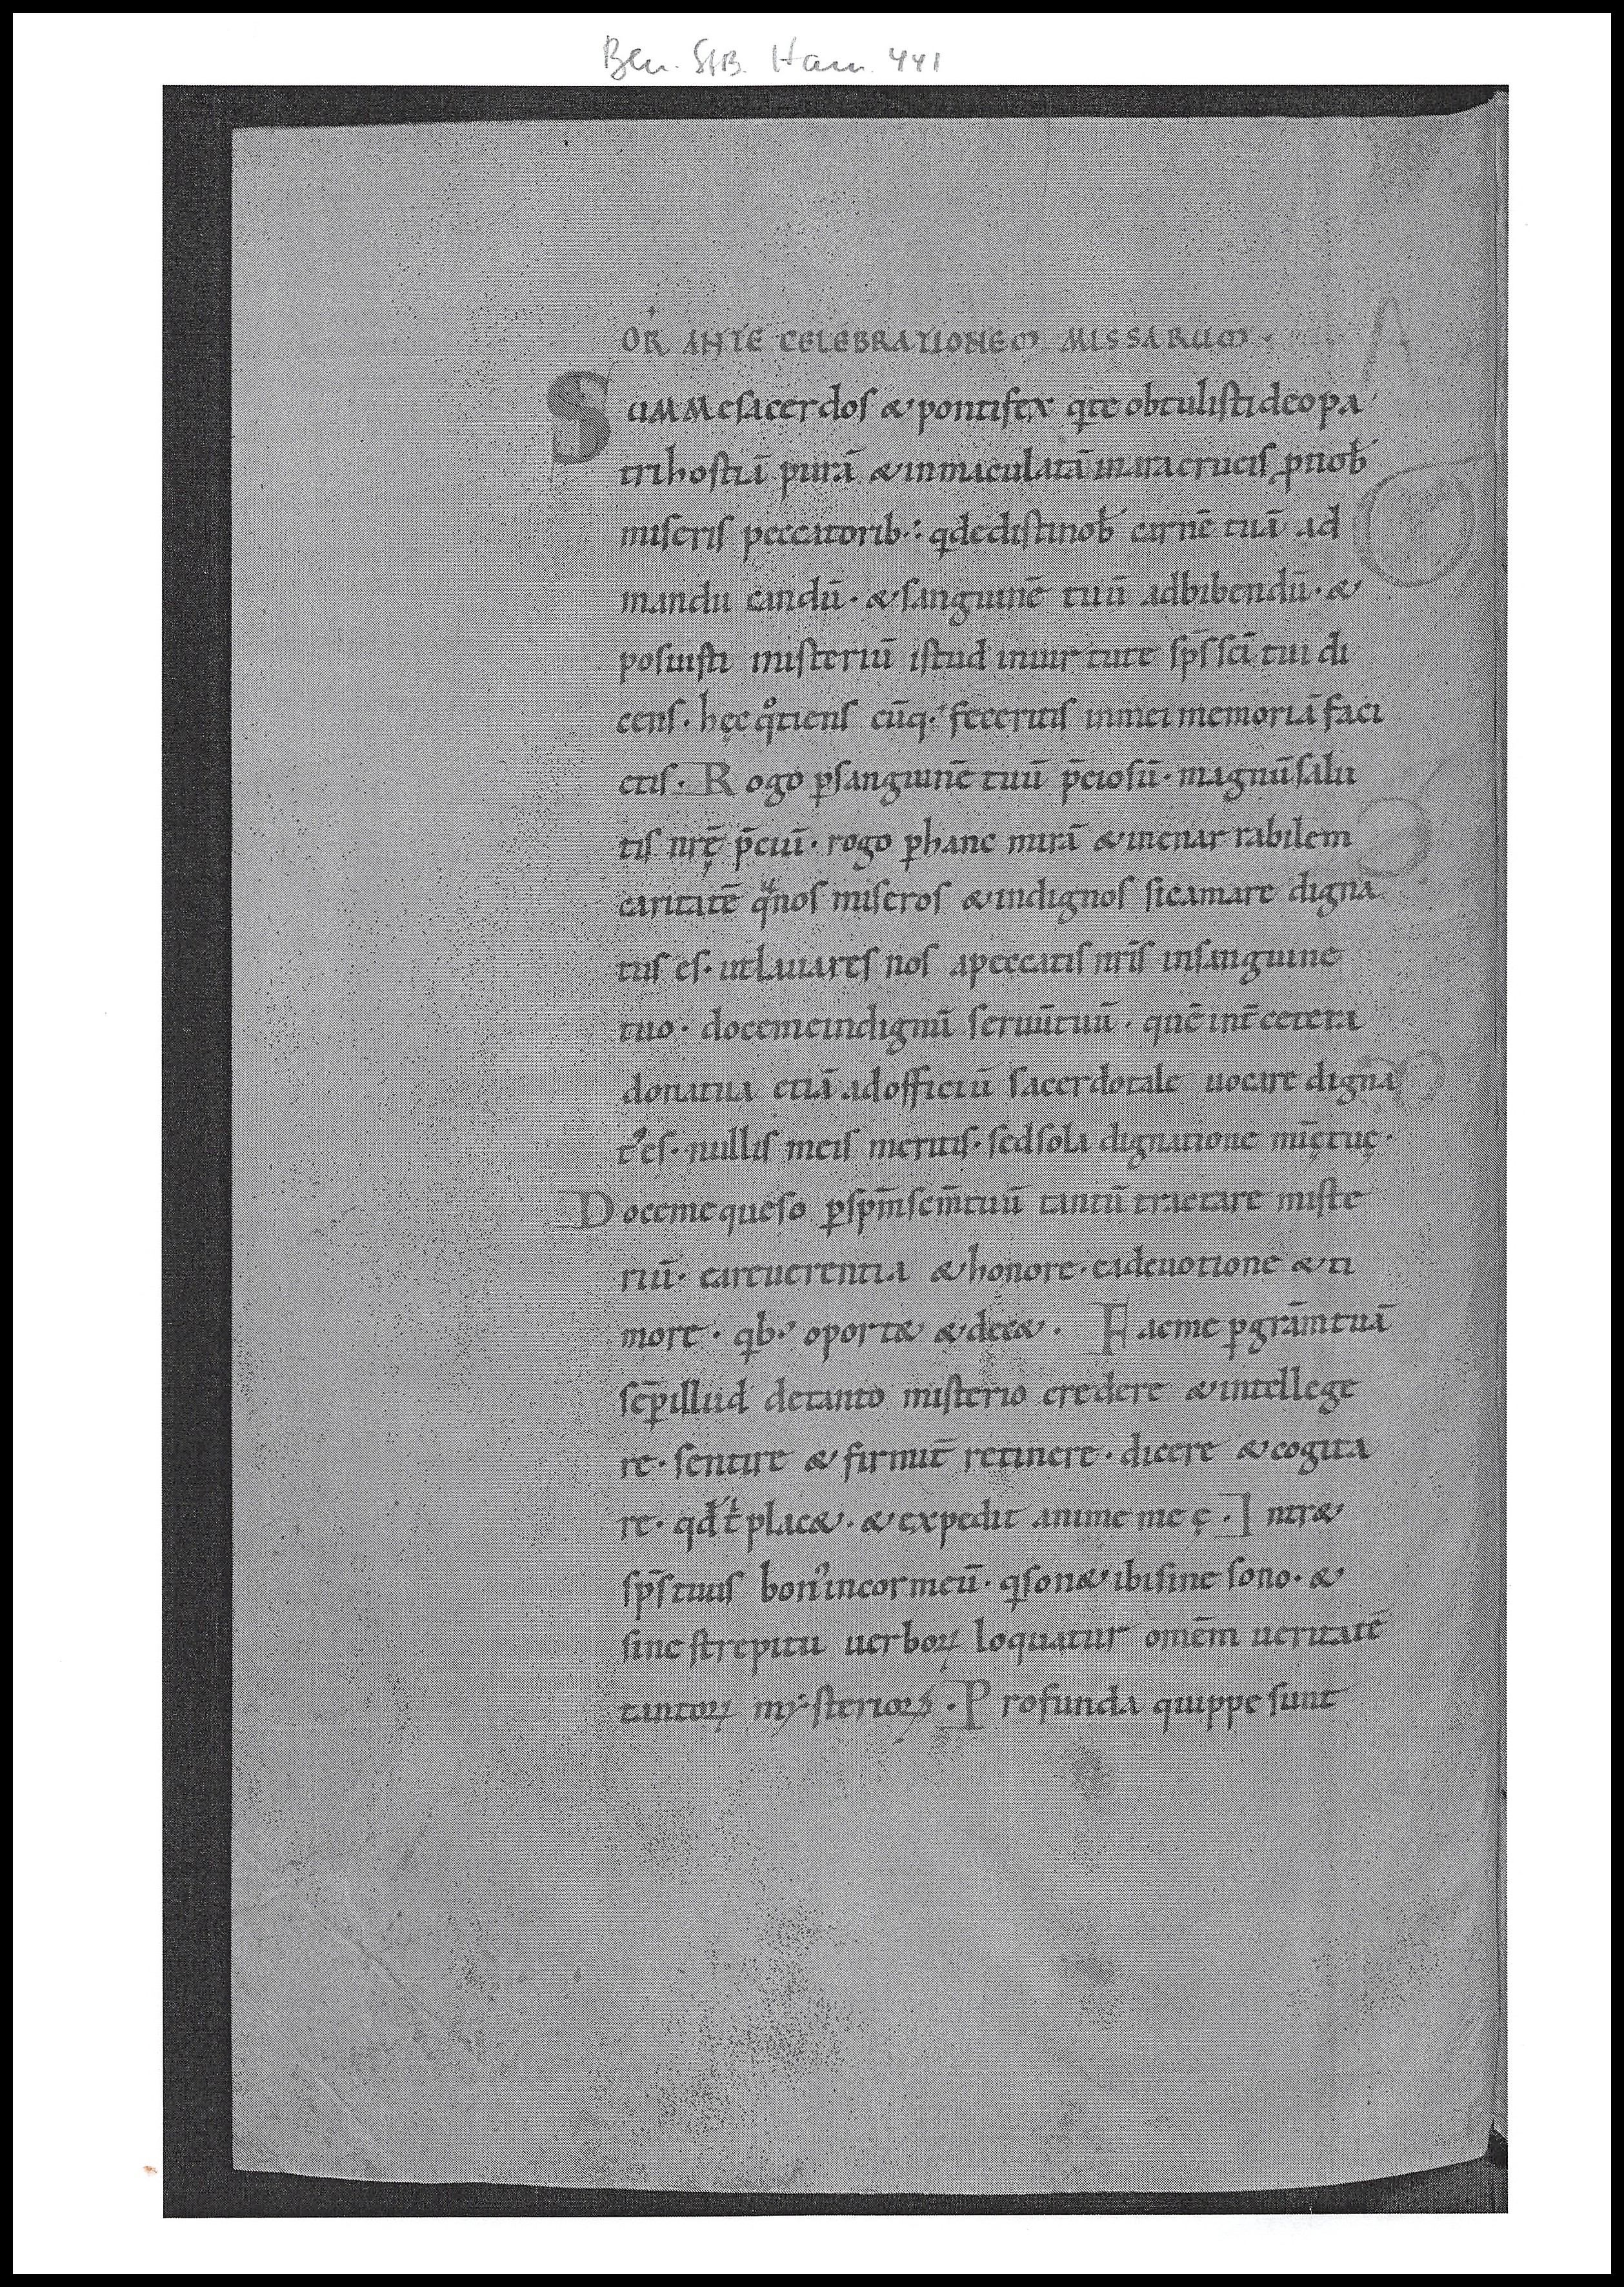 Ber. StB. Ham. 441
OR̄ ANTE CELEBRATIONEM MISSARUM.
SUMMe sacerdos & pontifex q̇ te obtulisti deo pa
tri hostiā purā & inmaculatā in ara crucis ꝓ nob̄
miseris peccatorib; q̇ dedisti nob̄ carnē tuā ad
manducandū. & sanguinē tuū ad bibendū. &
posuisti misteriū istud in uirtute sp̄s sc̄i tui di
cens. hęc qͦtiens cūq; feceritis in mei memoriā faci
etis. Rogo ꝑ sanguinē tuū p̄ciosū. magnū salu
tis nr̄ę p̄ciū. rogo ꝑ hanc mirā & inenarrabilem
caritatē qᵃ nos miseros & indignos sic amare digna
tus es. ut lauares nos a peccatis nr̄is in sanguine
tuo. doce me indignū seruū tuū. quē int̄ cetera
dona tua etiā ad officiū sacerdotale uocare digna
t᾽ es. nullis meis meritis. sed sola dignatione mīę tuę.
Doce me queso ꝑ sp̄m sc̄m tuū tantū tractare miste
riū. ea reuerentia & honore. ea deuotione & ti
more. qb; oport& & dec&. Fac me ꝑ gr̄am tuā
sēꝑ illud de tanto misterio credere & intellege
re. sentire & firmit̄ retinere. dicere & cogita
re. qd̄ t̄ plac&. & expedit anime meę. Intr&
sp̄s tuus bon᾽ in cor meū. q̇ son& ibi sine sono. &
sine strepitu uerboꝝ loquatur omēm ueritatē
tantoꝝ mẏsterioꝝ. Profunda quippe sunt